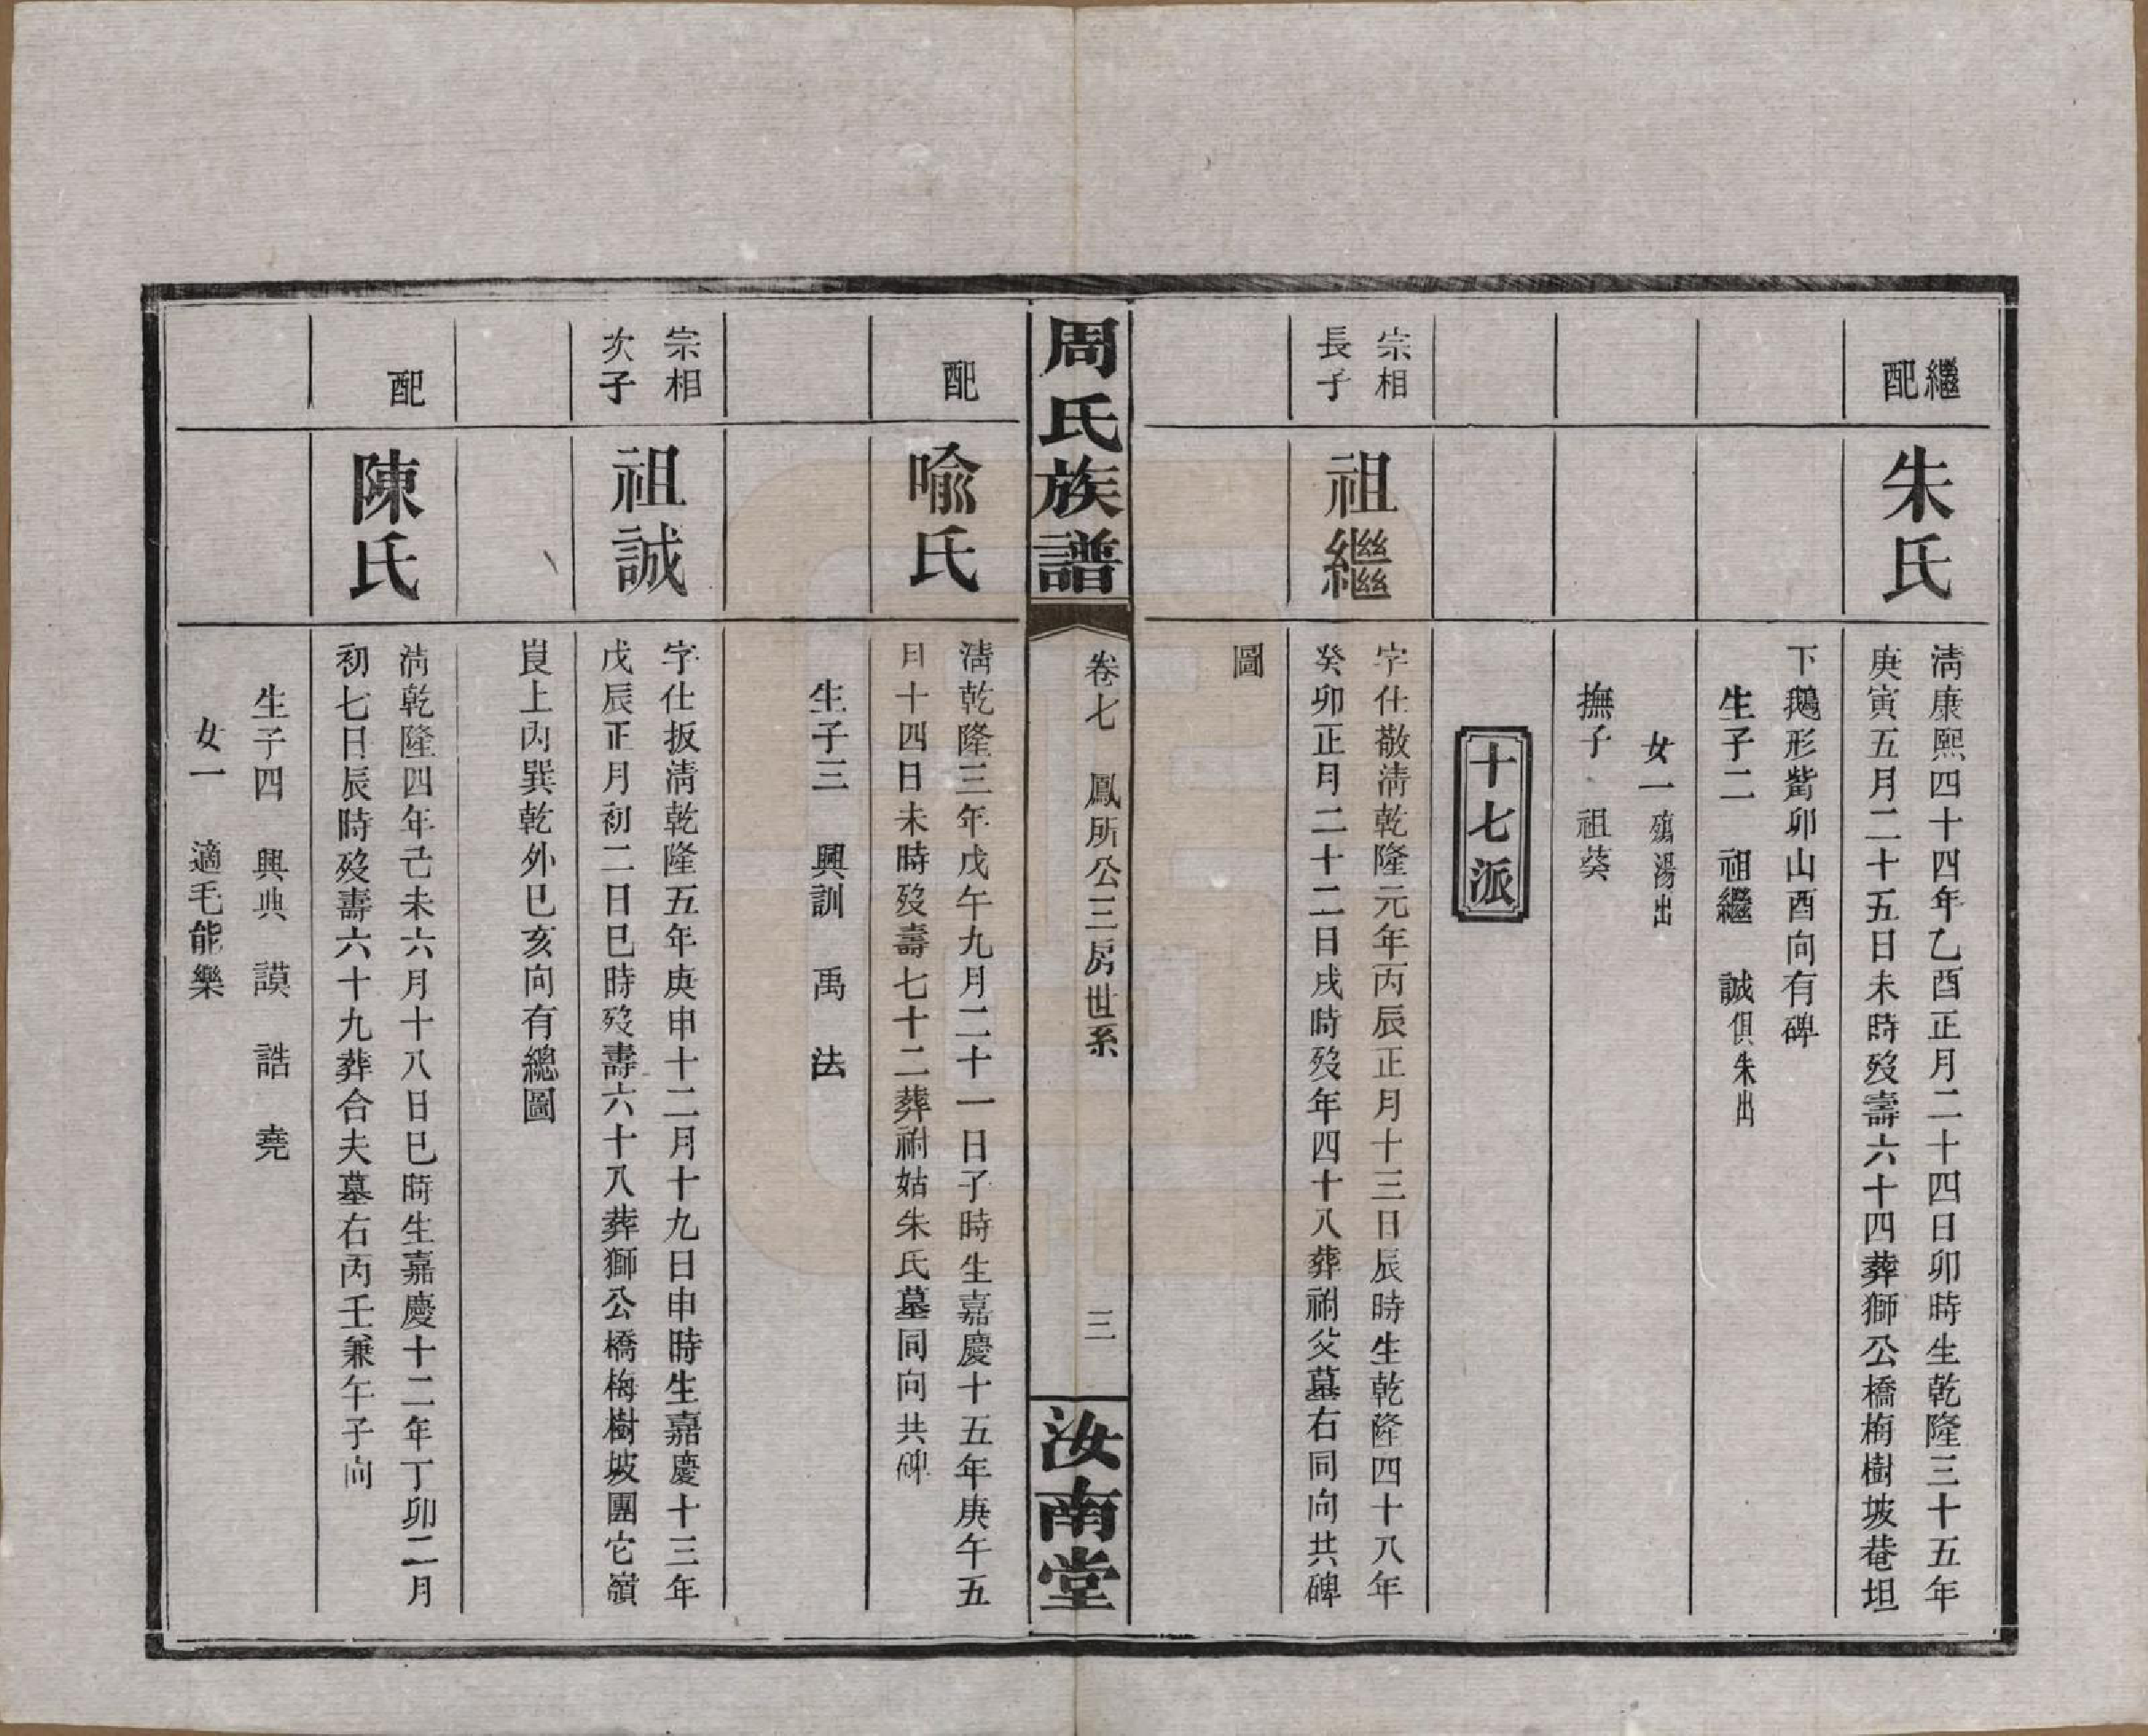 繼配
朱氏
清康熙四十四年乙酉正月二十四日卯時生乾隆三十五年
庚寅五月二十五日未時歿壽六十四葬獅公橋梅樹坡菴坦
下鵝形觜卯山酉向有碑
生子二　祖繼　誠俱朱出
女一殤湯出
撫子　祖葵
十七派
宗相
長子
祖繼
字仕敬清乾隆元年丙辰正月十三日辰時生乾隆四十八年
癸卯正月二十二日戌時歿年四十八葬祔父墓右同向共碑
圖
周氏族譜
卷七　鳳所公三房世系　三
汝南堂
配
喩氏
清乾隆三年戊午九月二十一日子時生嘉慶十五年庚午五
月十四日未時歿壽七十二葬祔姑朱氏墓同向共碑
生子三　興訓　禹　法
宗相
次子
祖誠
字仕扳清乾隆五年庚申十二月十九日申時生嘉慶十三年
戊辰正月初二日巳時歿壽六十八葬獅公橋梅樹坡團它嶺
崀上內巽乾外巳亥向有總圖
配
陳氏
清乾隆四年己未六月十八日巳時生嘉慶十二年丁卯二月
初七日辰時歿壽六十九葬合夫墓右丙壬兼午子向
生子四　興典　謨　誥　堯
女一　適毛能樂